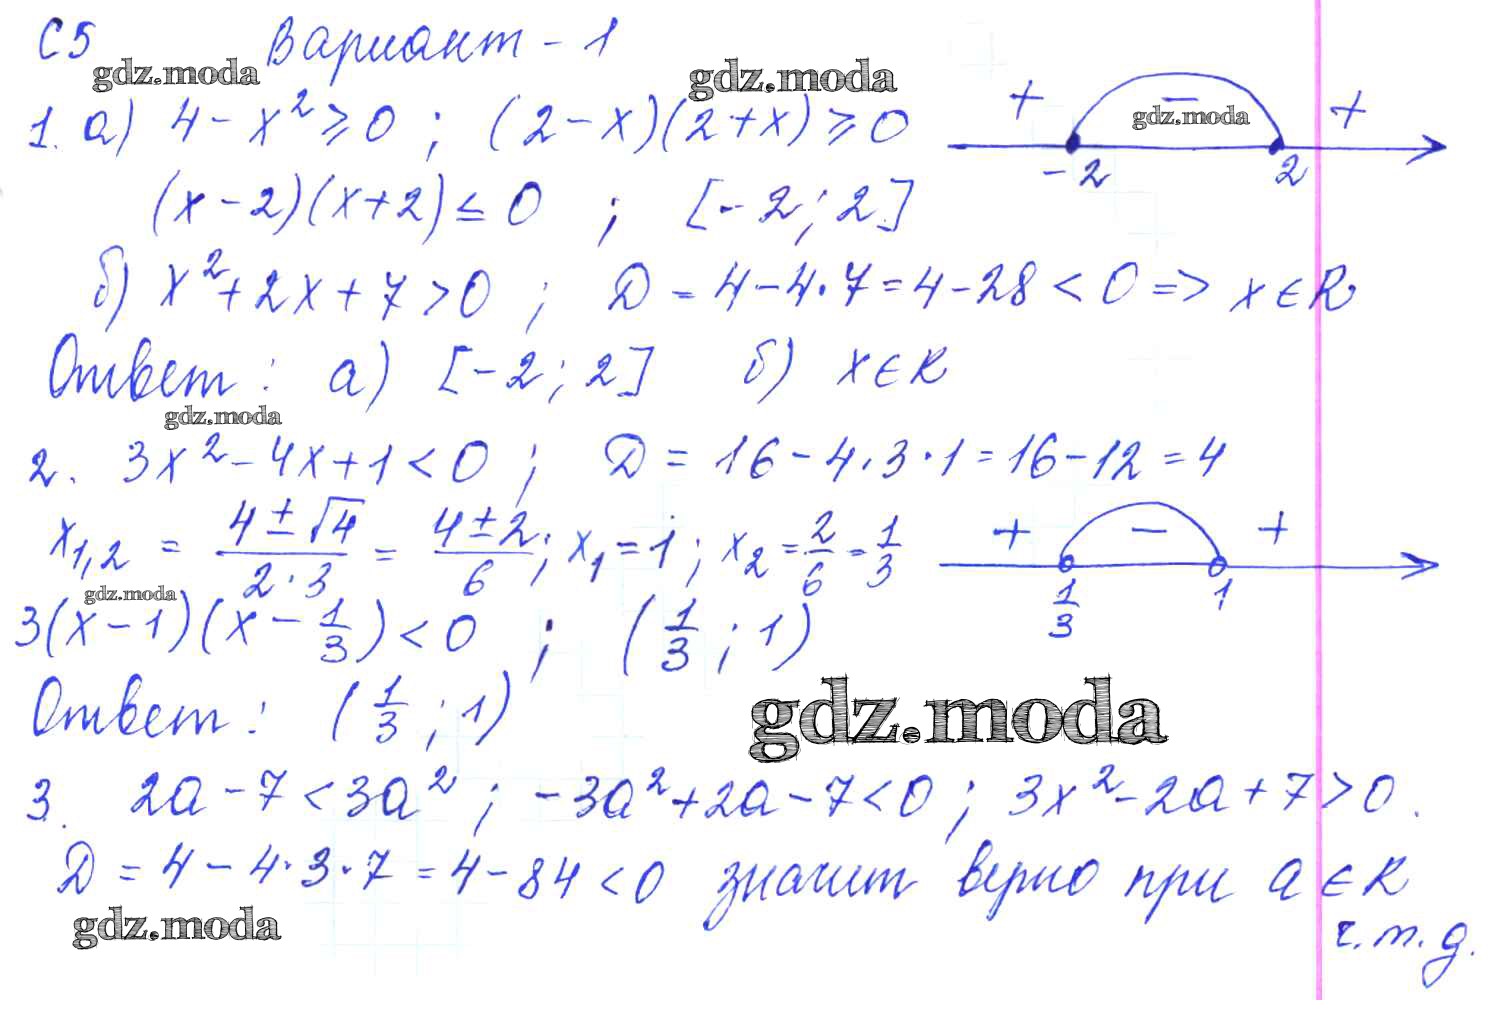 С5 Вариант - 1
gdz.moda gdz.moda
1. а) 4 - x² ≥ 0 ; (2 - x)(2 + x) ≥ 0
+ - + gdz.moda
-2 2
(x - 2)(x + 2) ≤ 0 ; [-2; 2]
б) x² + 2x + 7 > 0 ; D = 4 - 4·7 = 4 - 28 < 0 => x ∈ R
Ответ: а) [-2; 2] б) x ∈ R
gdz.moda
2. 3x² - 4x + 1 < 0 ; D = 16 - 4·3·1 = 16 - 12 = 4
x₁,₂ = (4 ± √4)/(2·3) = (4 ± 2)/6 ; x₁ = 1 ; x₂ = 2/6 = 1/3
+ - +
1/3 1
gdz.moda
3(x - 1)(x - 1/3) < 0 ; (1/3 ; 1)
Ответ: (1/3 ; 1)
gdz.moda
3. 2a - 7 < 3a² ; -3a² + 2a - 7 < 0 ; 3x² - 2a + 7 > 0.
D = 4 - 4·3·7 = 4 - 84 < 0 значит верно при a ∈ R
gdz.moda
ч.т.д.